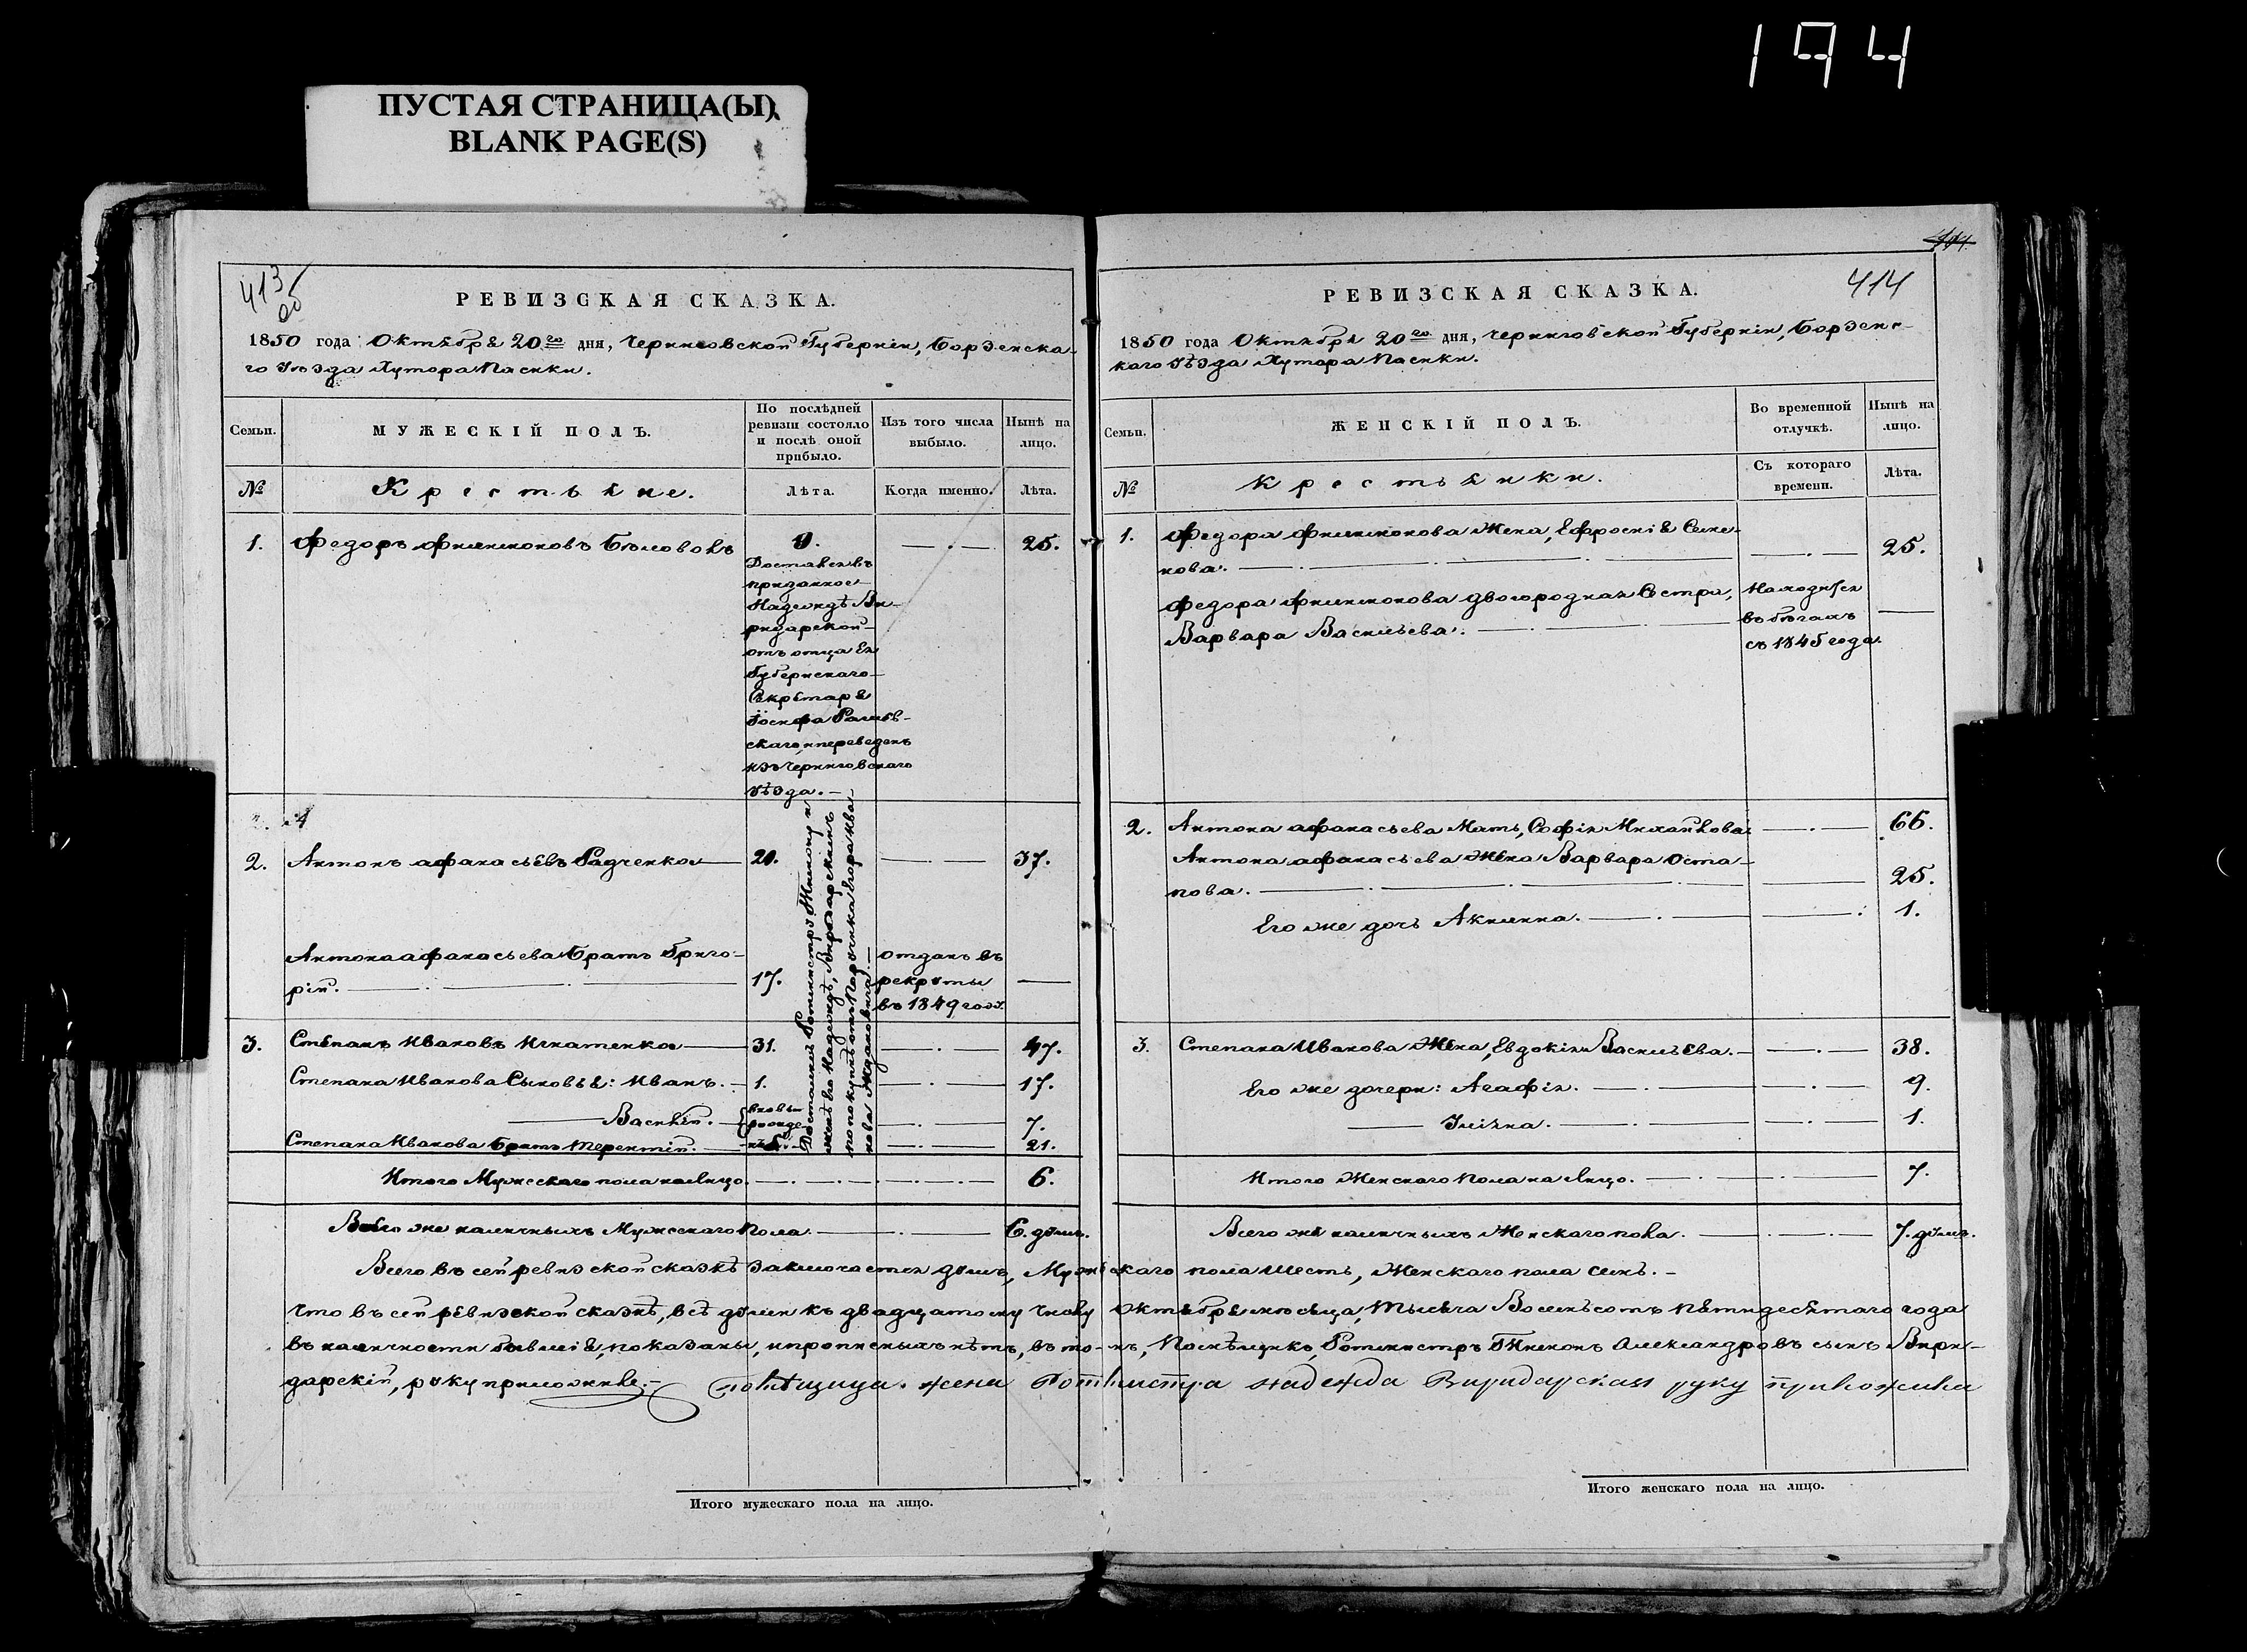 194
ПУСТАЯ СТРАНИЦА(Ы)
BLANK PAGE(S)
413
об
РЕВИЗСКАЯ СКАЗКА.
1850 года Октября 20го дня, Черниговской Губернiи, Борзенска-
го Уѣзда Хутора Пасики.
Семьи.
МУЖЕСКІЙ ПОЛЪ.
По послѣдней
ревизіи состояло
и послѣ оной
прибыло.
Изъ того числа
выбыло.
Нынѣ на
лицо.
№
Крестьяне.
Лѣта.
Когда именно.
Лѣта.
1. Федоръ Филимоновъ 9. 25.
Доставленъ
приданное
Надеждѣ Ви-
ридарской
отъ отца Ея
Губернскаго
Секретаря
Іосифа
скаго, и переведенъ
изъ Черниговскаго
уѣзда.
2. Антонъ Афанасьевъ Радченко 20. 37.
Антона Афанасьева Братъ Григо-
рій. 17. отданъ въ
рекруты
въ 1849 годѣ.
Достались Ротмистру Тимону и
женѣ его Надеждѣ, Виридарскимъ
по покупкѣ отъ Порутчика Егора Ива-
нова Ждановича.
3. Степанъ Ивановъ Игнатенко 31. 47.
Степана Иванова Сыновья: Иванъ. 1. 17.
Василій. вновь
рожде- 7.
Степана Иванова Братъ Терентій. 5. 21.
Итого Мужескаго пола на лицо. 6.
Всего же наличныхъ Мужескаго Пола. 6. душъ.
414
РЕВИЗСКАЯ СКАЗКА.
1850 года Октября 20го дня, Черниговской Губерніи, Борзенс-
каго Уѣзда Хутора Пасики.
Семьи.
ЖЕНСКІЙ ПОЛЪ.
Во временной
отлучкѣ.
Нынѣ на
лицо.
№
Крестьянки.
Съ котораго
времени.
Лѣта.
1. Федора Филимонова Жена, Ефросиія Семе-
нова. 25.
Федора Филимонова двоюродная Сестра, Находится
Варвара Васильева. въ бѣгахъ
съ 1845 года.
2. Антона Афанасьева Мать, Софія Михайлова. 66.
Антона Афанасьева Жена Варвара Оста-
пова. 25.
Его же дочь Акилина. 1.
3. Степана Иванова Жена, Евдокія Васильева. 38.
Его же дочери: Агафія. 9.
Уліяна. 1.
Итого Женскаго Пола на лицо. 7.
Всего же наличныхъ Женскаго пола. 7. душъ.
Всего въ сей ревизской сказкѣ заключается душъ, Мужескаго пола шесть, Женскаго пола семь.
Что въ сей ревизской сказкѣ, всѣ души къ двадцатому числу Октября мѣсяца, Тысяча Восемьсотъ Пятидесятаго года
въ наличности бывшія, показаны, и прописныхъ нѣтъ, въ томъ, Помѣщикъ, Ротмистръ Тимонъ Александровъ сынъ Вири-
дарскій, руку приложилъ. помѣщица. жена Ротмистра надежда Виридарская руку приложила
Итого мужескаго пола на лицо.
Итого женскаго пола на лицо.